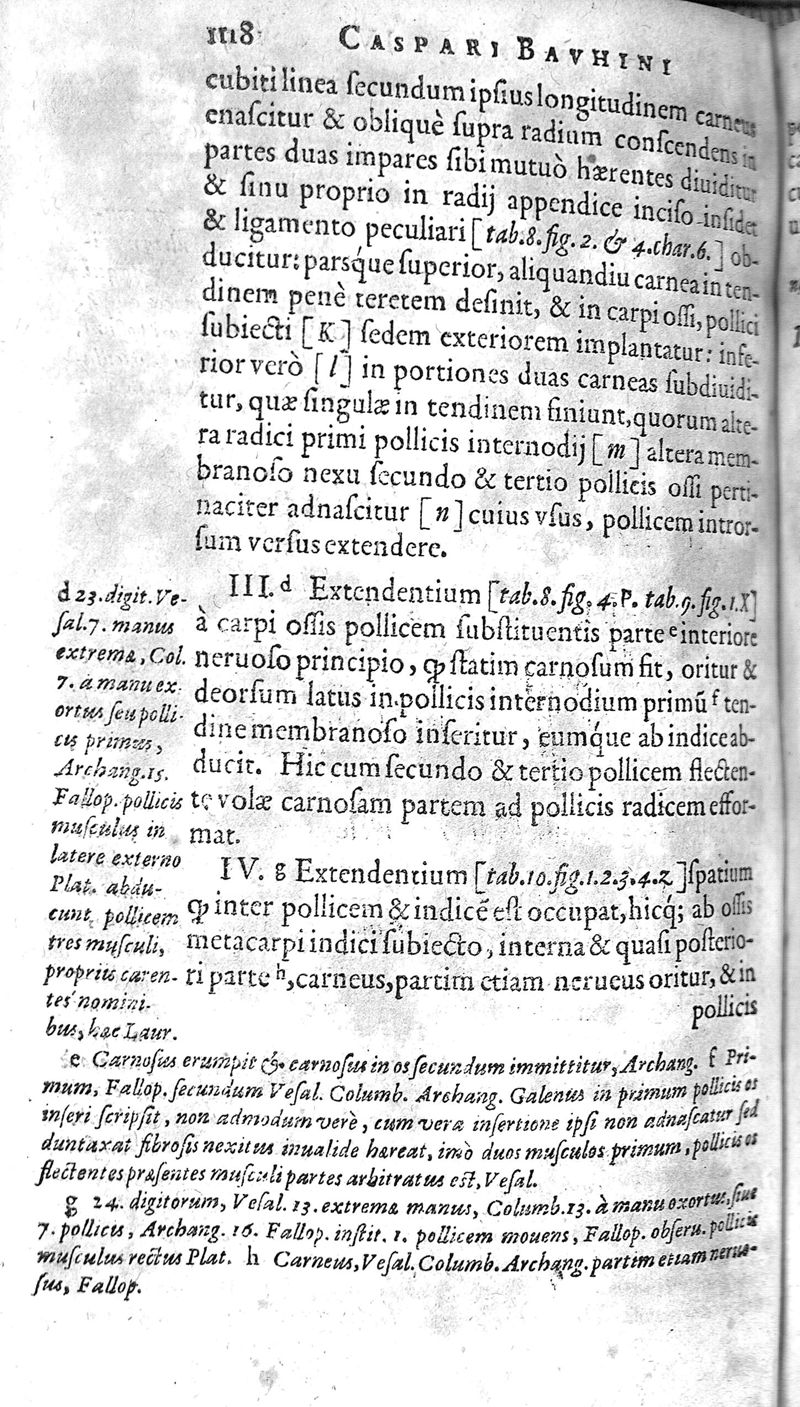 1118 CASPARI BAVHINI
cubiti linea ſecundum ipſius longitudinem carneus
enaſcitur & obliquè ſupra radium conſcendens in
partes duas impares ſibi mutuò hærentes diuiditur
& ſinu proprio in radij appendice inciſo inſidet
& ligamento peculiari [tab.8.fig.2. & 4.char.6.] ob-
ducitur: parsq́ue ſuperior, aliquandiu carnea in ten-
dinem penè teretem deſinit, & in carpi oſſi, pollici
ſubiecti [K] ſedem exteriorem implantatur: infe-
rior verò [l] in portiones duas carneas ſubdiuidi-
tur, quæ ſingulæ in tendinem finiunt, quorum alte-
ra radici primi pollicis internodij [m] altera mem-
branoſo nexu ſecundo & tertio pollicis oſſi perti-
naciter adnaſcitur [n] cuius vſus, pollicem intror-
ſum verſus extendere.
III. d Extendentium [tab.8.fig.4.P. tab.9.fig.1.X]
à carpi oſſis pollicem ſubſtituentis parte e interiore
neruoſo principio, ꝙ ſtatim carnoſum fit, oritur &
deorſum latus in pollicis internodium primũ f ten-
dine membranoſo inſeritur, eumq́ue ab indice ab-
ducit. Hic cum ſecundo & tertio pollicem flecten-
te volæ carnoſam partem ad pollicis radicem effor-
mat.
IV. g Extendentium [tab.10.fig.1.2.3.4.Z] ſpatium
ꝙ inter pollicem & indicē eſt occupat, hicq́; ab oſſis
metacarpi indici ſubiecto, interna & quaſi poſterio-
ri parte h, carneus, partim etiam nerueus oritur, & in
pollicis
d 23. digit. Ve-
ſal. 7. manus
extremæ, Col.
7. à manu ex-
ortus ſeu polli-
cis primus,
Archang. 15.
Fallop. pollicis
muſculus in
latere externo
Plat. abdu-
cunt pollicem
tres muſculi,
propriis caren-
tes nomini-
bus, hæc Laur.
e Carnoſus erumpit & carnoſus in os ſecundum immittitur, Archang. f Pri-
mum, Fallop. ſecundum Veſal. Columb. Archang. Galenus in primum pollicis os
inſeri ſcripſit, non admodum verè, cum vera inſertione ipſi non adnaſcatur ſed
duntaxat fibroſis nexibus inualide hæreat, imò duos muſculos primum, pollicis os
flectentes præſentes muſculi partes arbitratus eſt, Veſal.
g 24. digitorum, Veſal. 13. extremæ manus, Columb. 13. à manu exortus, ſiue
7. pollicis, Archang. 16. Fallop. inſtit. 1. pollicem mouens, Fallop. obſeru. pollicis
muſculus rectus Plat. h Carneus, Veſal. Columb. Archang. partim etiam neruo-
ſus, Fallop.